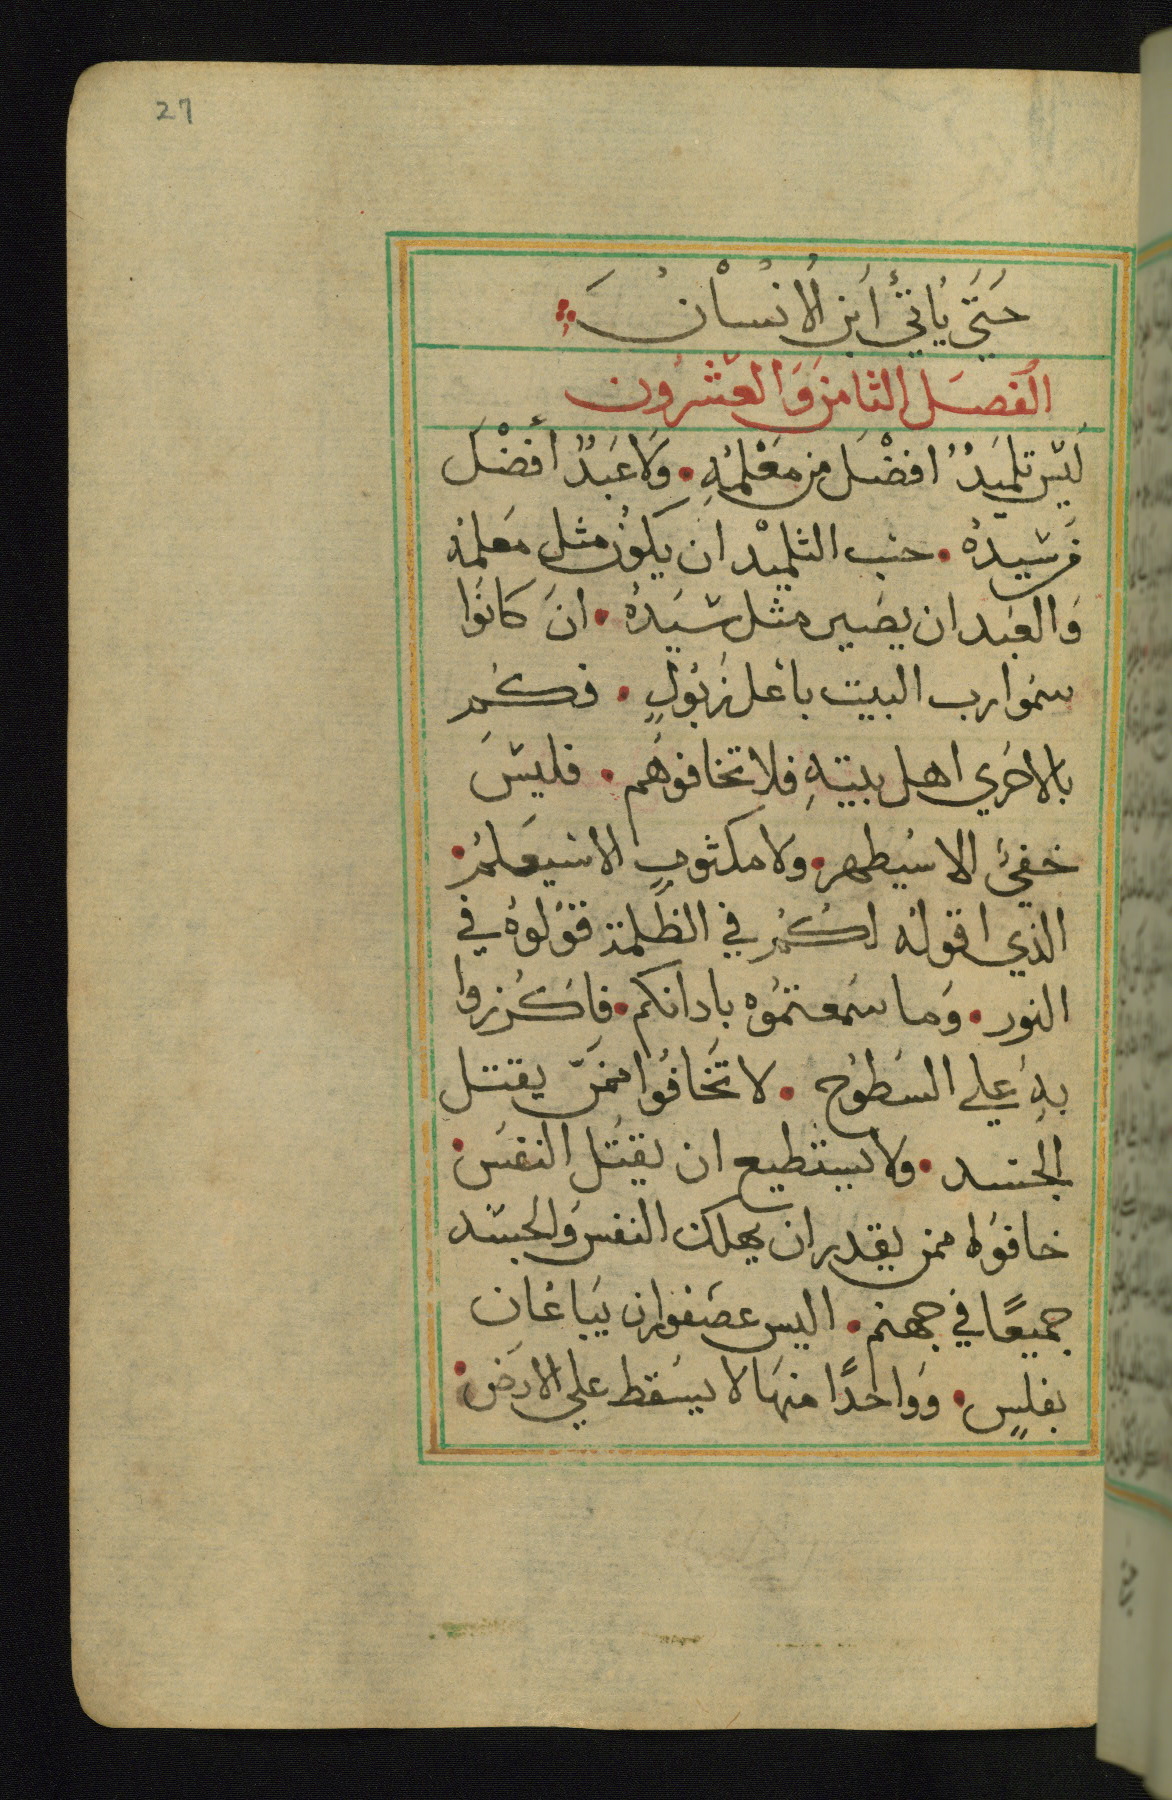 27
حَتَّي يُاتيُ أبن الانسان
الفصل الثامن والعشرون
ليس تلميدٌ افضل من معلمهِ • ولا عبدٌ أفضل
من سيدهُ • حسب التلميد ان يكون مثل معلمه
والعبد ان يصير مثل سيده • ان كانوا
سموا رب البيت باعل زبول • فكم
بالاحري اهل بيتهِ فلا تخافوهم • فليس
خفيٌ الا سيظهر • ولا مكتومٍ الا سيعلم •
الذي اقوله لكم في الظلمة فقولوه في
النور • وما سمعتموه بادانكم • فاكرزوا
به علي السطوح • لا تخافوا ممن يقتل
الجسد • ولا يستطيع ان يقتل النفس •
خافوا ممن يقدر ان يهلك النفس والجسد
جميعًا في جهنم • اليس عصفوران يباعان
بفلسٍ • وواحدًا منها لا يسقط علي الارض •